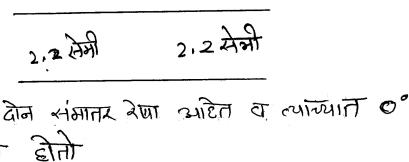 2.2 सेमी 2.2 सेमी
दोन संमातर रेषा आहेत व त्यांच्यात 0°
होतो